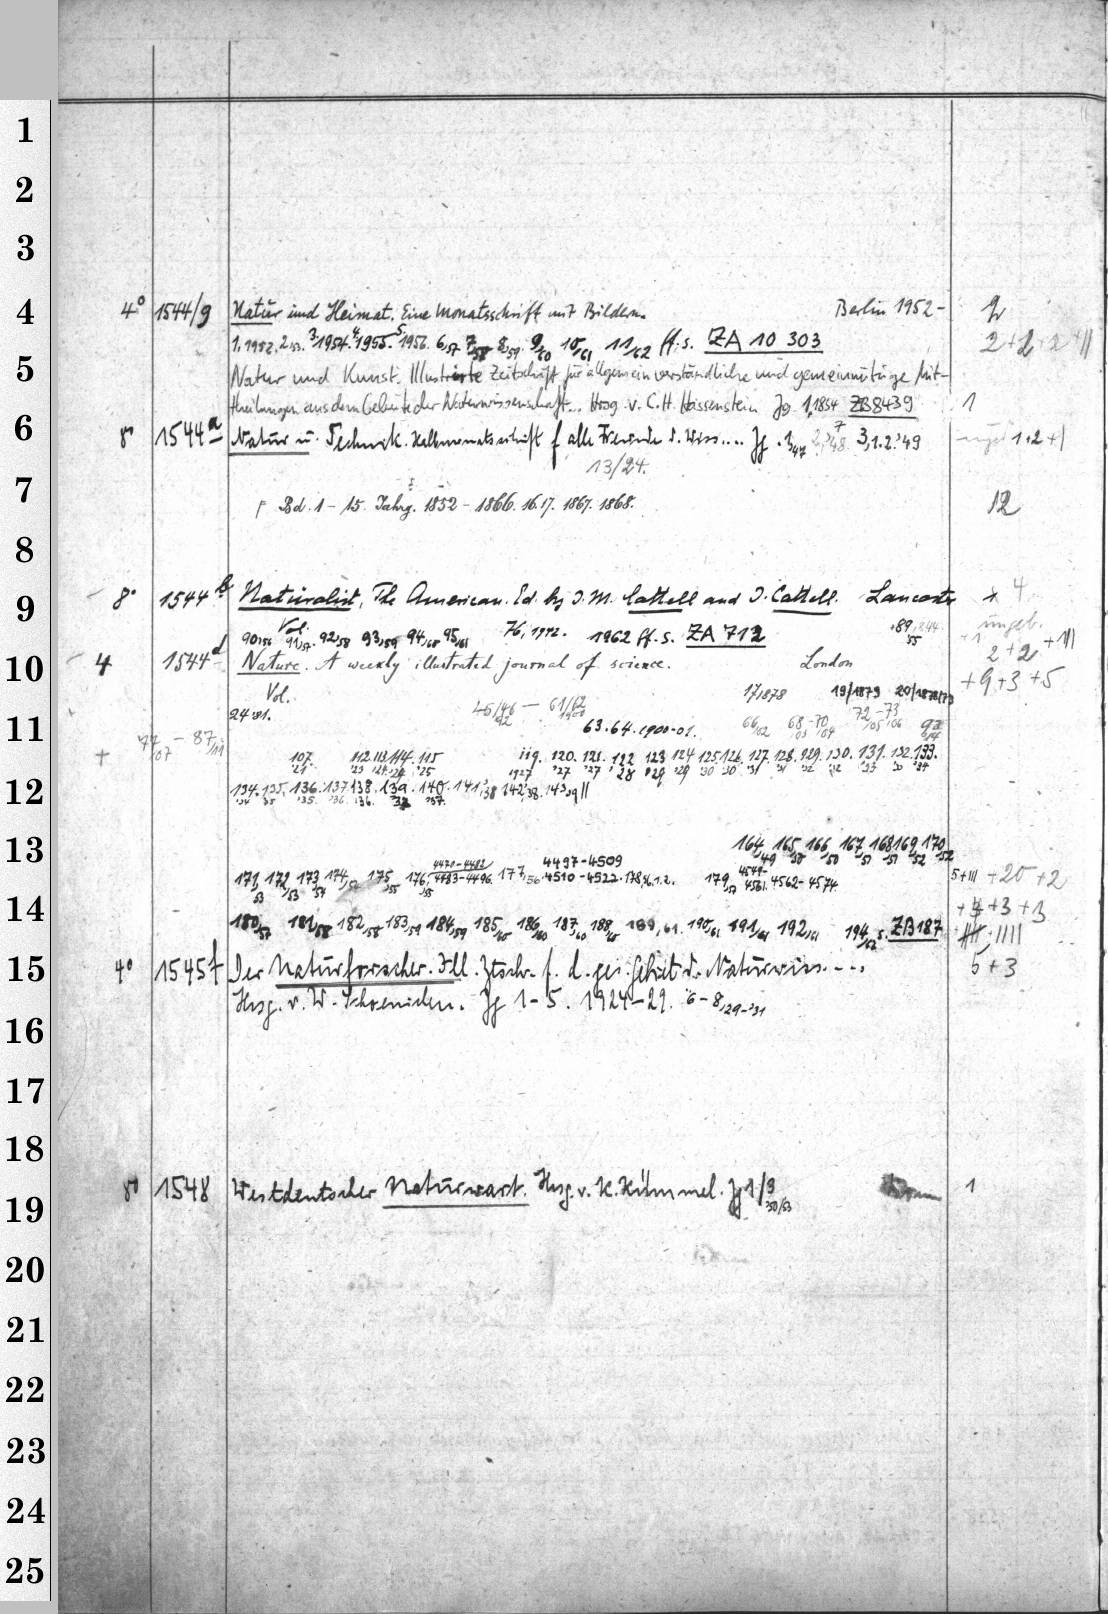 4° 1544/9 Natur und Heimat. Eine Monatsschrift mit Bildern. Berlin 1952-
1,1952. 2,53. 3,1954. 4,1955. 5,1956. 6,57 7,58 8,59 9/60 10/61 11/62 ff. s. ZA 10 303 2+2+2+II
Natur und Kunst. Illustrierte Zeitschrift für allgemein verständliche und gemeinnützige Mit-
theilungen aus dem Gebiete der Naturwissenschaft... Hrsg. v. C. H. Hassenstein Jg. 1,1854 ZB8439 1
8° 1544a Natur u. Technik. Halbmonatsschrift f alle Freunde d. Wiss.... Jg. 1,47 3,1.2.'49 1+2+I
13/24.
Bd. 1 - 15. Jahrg. 1852 - 1866. 16.17. 1867. 1868. 12
8° 1544b Naturalist, The American. Ed. by J. M. Cattell and J. Cattell. Lancaster 4
Vol. 92,58 93,59 94,60 95,61 76,1942. 1962 ff. s. ZA 712 ungeb.
4 1544d Nature. A weekly illustrated journal of science. London 2+2 +III
Vol. 17,1878 19/1879 +9+3+5
24 '81. 45/46 — 61/62 63.64. 1900-01. 66/02 68-70 72-73
77/07 - 87/11
107. 112 113 114. 115 119. 120. 121. 122 123 124 125 126. 127. 128. 129. 130. 131. 132. 133.
'21 '23 '24 '24 '25 1927 '27 '27 '28 '29 '29 '30 '30 '31 '31 '32 '32 '33 '33 '34
134. 135. 136. 137 138. 139. 140. 141,'38 142,'38. 143,39 II
164,49 165,50 166,50 167,51 168,51 169,52 170,52
171,53 172,53 173,54 174,54 175,55 176,55 4471-4482 4483-4496. 177,56 4497-4509 4510-4522. 178,56.1.2. 179,57 4549- 4561. 4562-4574. 5+III +20+2
+4+3+3
180,57 181,58 182,58 183,59 184,59 185,60 186,60 187,60 188,60 189,61. 190,61 191,61 192,61 194,62 s. ZB187
4° 1545f Der Naturforscher. Ill. Ztschr. f. d. ges. Gebiet d. Naturwiss.... 5+3
Hrsg. v. W. Schoenichen. Jg 1-5. 1924-29. 6-8,29-'31
8° 1548 Westdeutscher Naturwart. Hrsg. v. K. Kümmel. Jg 1/3 '50/53 Bonn 1